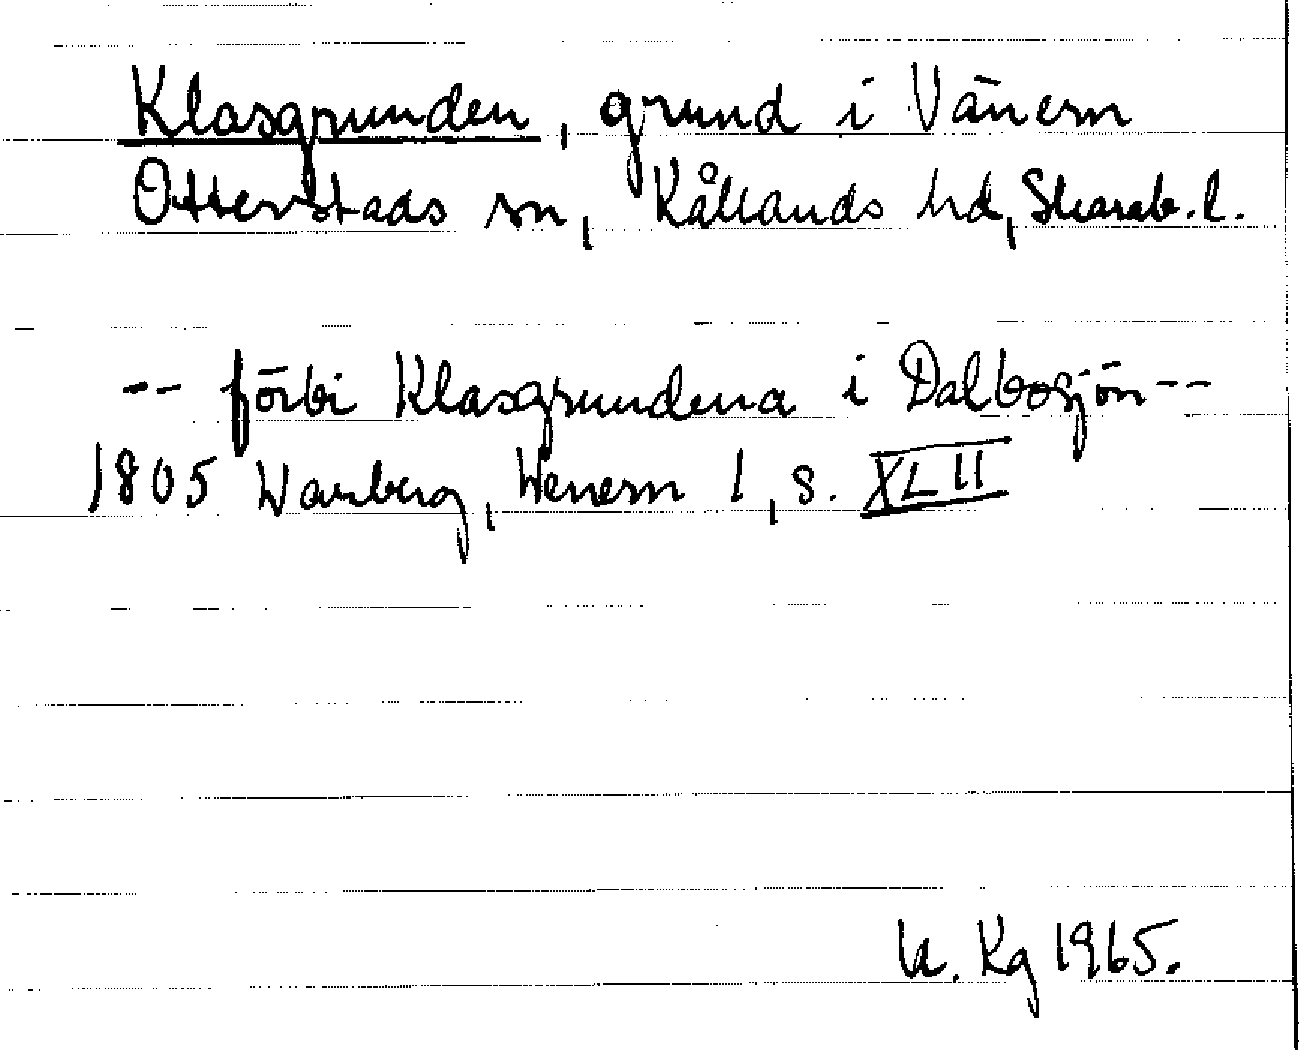 Klasgrunden, grund i Vänern
Otterstads sn, Kållands hd, Skarab. l.
-- förbi Klasgrundena i Dalbosjön --
1805 Warberg, Wenern 1, s. XLII
Kg 1965.